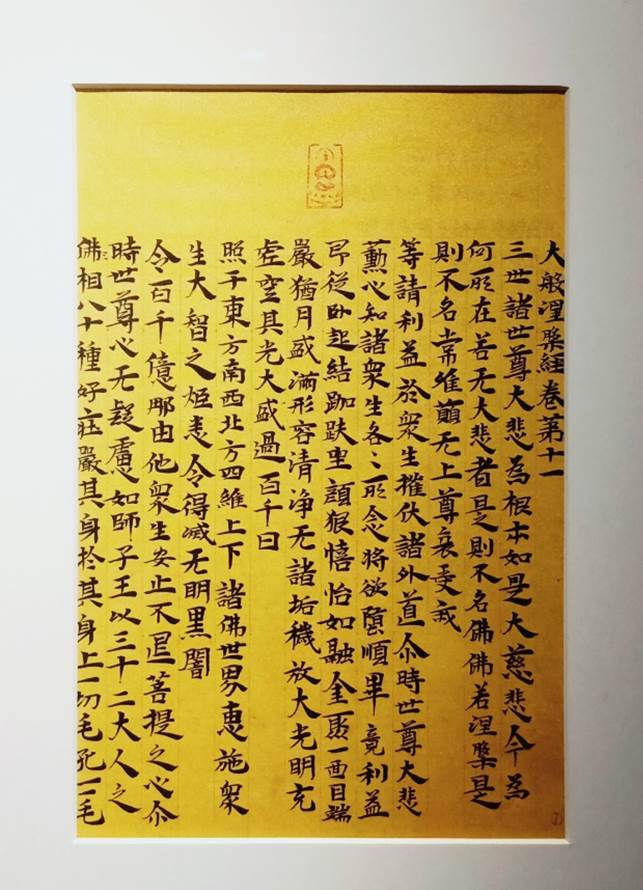 大般涅槃經卷第十一
三世諸世尊大悲為根本如是大慈悲今為
何所在若无大悲者是則不名佛佛若涅槃是
則不名常唯願无上尊哀受我
等請利益於衆生摧伏諸外道尒時世尊大悲
勳心知諸衆生各〻所念將欲隨順畢竟利益
即從卧起結跏趺坐顔貌憘怡如融金聚面目端
嚴猶月盛滿形容清淨无諸垢穢放大光明充
虛空其光大盛過百千日
照于東方南西北方四維上下諸佛世界惠施衆
生大智之炬悉令得滅无明黑闇
令百千億那由他衆生安止不退菩提之心尒
時世尊心无疑慮如師子王以三十二大人之
佛相八十種好莊嚴其身於其身上一切毛孔一一毛